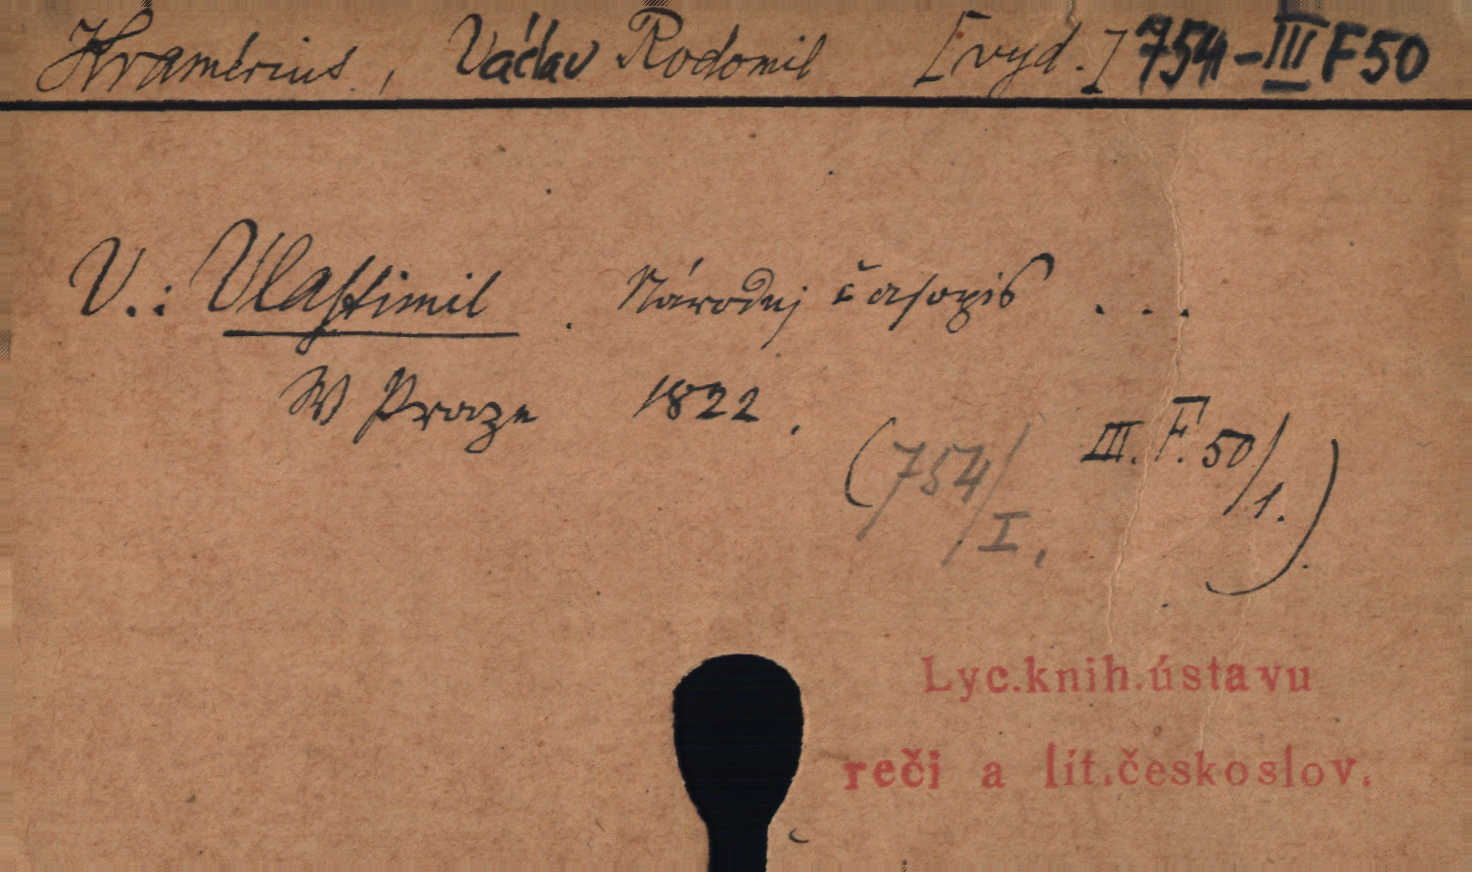 Kramérius, Václav Rodomil [vyd.] 754-III F50
V.: Vlastimil. Národnj časopis ...
W Praze 1822.
(754/I. III. F. 50/1.)
Lyc.knih.ústavu
reči a lit.českoslov.